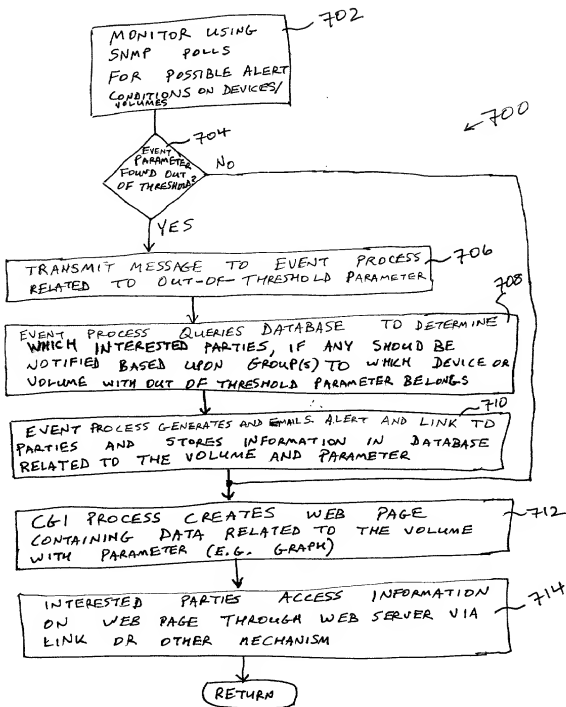 MONITOR USING
SNMP POLLS
FOR POSSIBLE ALERT
CONDITIONS ON DEVICES/
VOLUMES
702
700
704
EVENT
PARAMETER
FOUND OUT
OF THRESHOLD?
NO
YES
TRANSMIT MESSAGE TO EVENT PROCESS
RELATED TO OUT-OF-THRESHOLD PARAMETER
706
708
EVENT PROCESS QUERIES DATABASE TO DETERMINE
WHICH INTERESTED PARTIES, IF ANY SHOULD BE
NOTIFIED BASED UPON GROUP(S) TO WHICH DEVICE OR
VOLUME WITH OUT OF THRESHOLD PARAMETER BELONGS
710
EVENT PROCESS GENERATES AND EMAILS ALERT AND LINK TO
PARTIES AND STORES INFORMATION IN DATABASE
RELATED TO THE VOLUME AND PARAMETER
CGI PROCESS CREATES WEB PAGE
CONTAINING DATA RELATED TO THE VOLUME
WITH PARAMETER (E.G. GRAPH)
712
INTERESTED PARTIES ACCESS INFORMATION
ON WEB PAGE THROUGH WEB SERVER VIA
LINK OR OTHER MECHANISM
714
RETURN